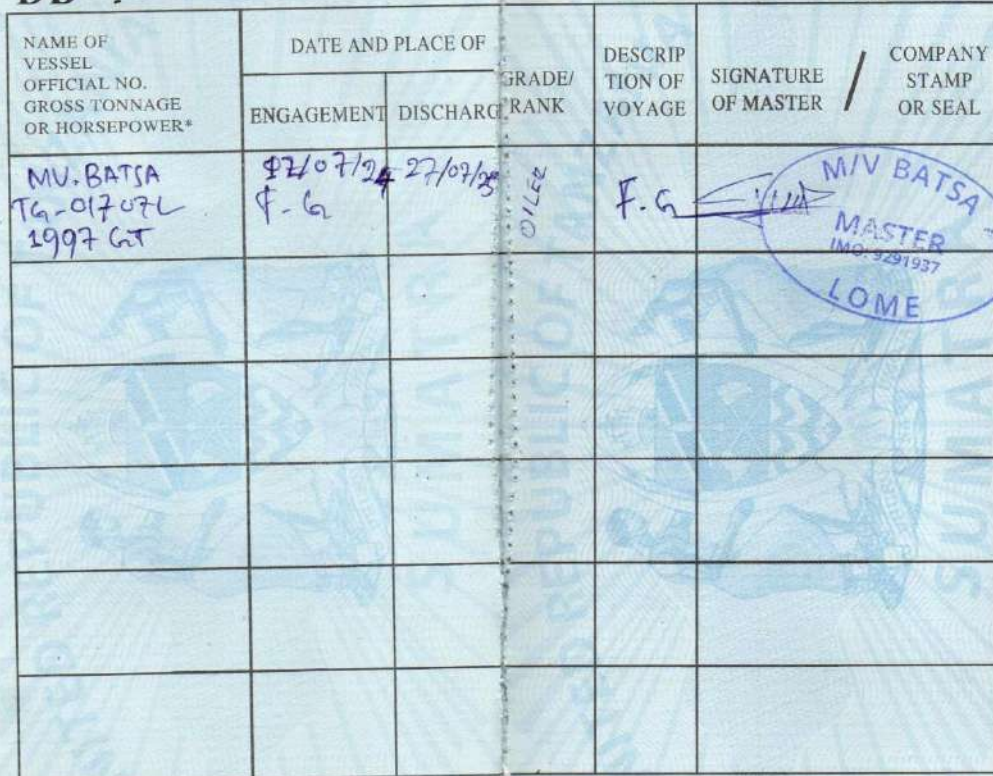 NAME OF
VESSEL
OFFICIAL NO.
GROSS TONNAGE
OR HORSEPOWER*
DATE AND PLACE OF
ENGAGEMENT
DISCHARG
GRADE/
RANK
DESCRIP
TION OF
VOYAGE
SIGNATURE
OF MASTER
/
COMPANY
STAMP
OR SEAL
MV. BATSA
TG-01707L
1997 GT
27/07/24
F-G
27/07/25
OILER
F.G
M/V BATSA
MASTER
IMO: 9291937
LOME
REPUBLIC OF
SUMATRA